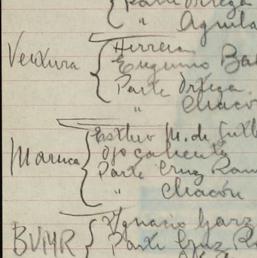 Parte Ortega
" Aguila
Ventura { Herrera
Eugenio
Parte Ortega
" Chacón
Maruca { Esther M. de
Ojo caliente
Parte Cruz Ram
" Chacón
BVMR { Ygnacio Garz
Parte Cruz R